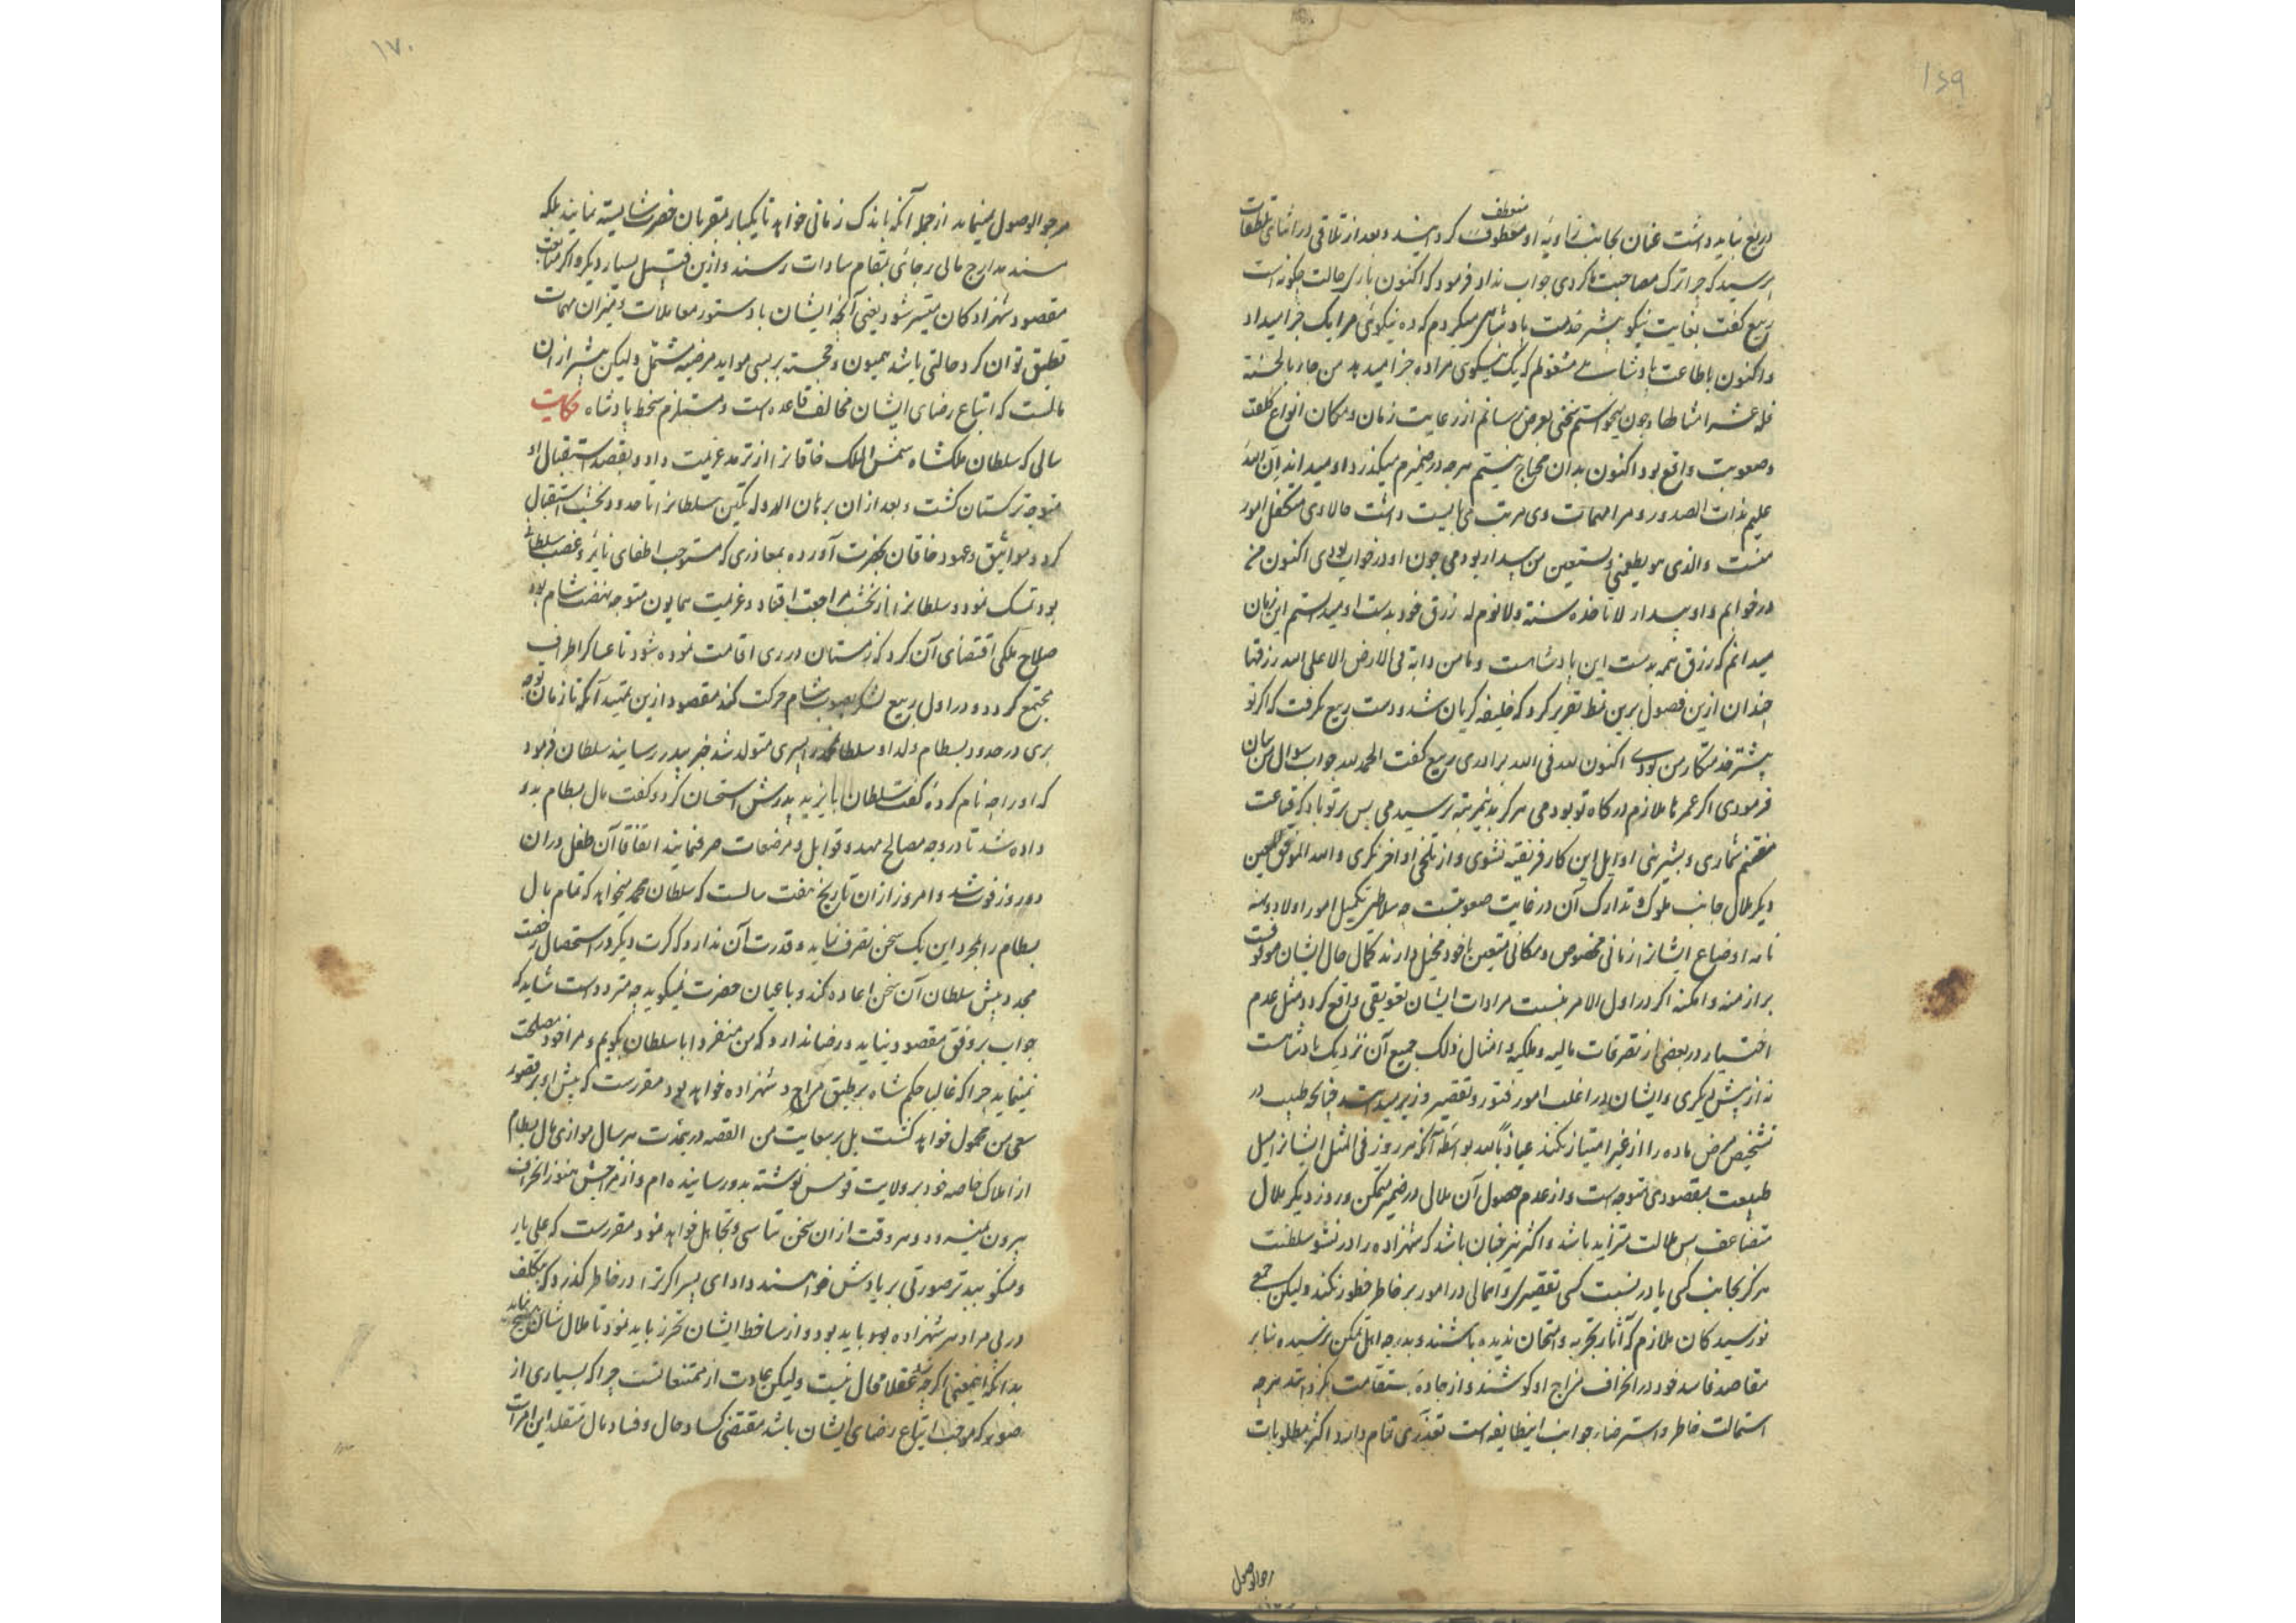 ۱۶۹
دریغ نباید داشت عنان بجانب زاویه او معطوف منعطف کردانید و بعد از تلاقی در اثنای تلطفات
پرسید که چرا ترک مصاحبت ما کردی جواب نداد فرمود که اکنون باری حالت چکونه است
ربیع کفت بغایت نیکو پیشتر خدمت بادشاهی میکردم که ده نیکوئی مرا یک جزا میداد
و اکنون باطاعت بادشاهی مشغولم که یک نیکوی مرا ده جزا میدهد من جاء بالحسنة
فله عشر امثالها و چون میخواستم سخنی بعرض رسانم از رعایت زمان و مکان انواع کلفت
و صعوبت واقع بود اکنون بدان محتاج نیستم هرچه در ضمیرم میکذرد او میداند ان الله
علیم بذات الصدور و مرا مهمات وی مرتب می بایست داشت حالا وی متکفل امور
منست والذی هو یطعمنی و یسقین من بیدار بودمی چون او در خواب بودی اکنون من
در خوابم و او بیدار لا تاخذه سنة ولا نوم له رزق خود بدست او میدانستم این زمان
میدانم که رزق همه بدست این بادشاست و ما من دابة فی الارض الا علی الله رزقها
چندان ازین فصول برین نمط تقریر کرد که خلیفه کریان شد و دست ربیع بکرفت که اکر تو
پیشتر خدمتکار من بودی اکنون لله فی الله برادری ربیع کفت الحمد لله جواب سوال من بیان
فرمودی اکر عمرها ملازم درکاه تو بودمی هرکز بدین مرتبه نرسیدمی پس بر تو باد که قناعت
مغتنم شماری و بشیرینی اوایل این کار فریفته نشوی و از تلخی اواخر نکری والله الموفق المعین
دیکر ملال جانب ملوک و تدارک آن در غایت صعوبتست چه سلاطین تکمیل امور اولاد و
تامه اوضاع ایشانرا زمانی مخصوص و مکانی متعین با خود مخیل دارند کمال حال ایشان موقوفست
بر ازمنه و امکنه اکر در اول الامر بنسبت مرادات ایشان تعویقی واقع کردد مثل عدم
اختیار در بعضی از تصرفات مالیه و ملکیه و امثال ذلک جمیع آن نزدیک بادشاست
نه از پیش دیکری و ایشان در اغلب امور فتور و تقصیر وزیر میدانند چنانکه طبیب در
تشخیص مرض ماده را از غیر امتیاز نکند عیاذا بالله بواسطه آنکه هر روز فی المثل ایشانرا میل
طبیعت بمقصودی متوجه است و از عدم حصول آن ملالی در ضمیر متمکن و روز دیکر ملال
متضاعف پس ملالت متزاید باشد و اکثر نیز چنان باشد که شهزاده را در نشو سلطنت
هرکز بجانب کسی یا در نسبت کسی تقصیری و اهمالی در امور بر خاطر خطور نکند ولیکن جمعی
نورسیدکان ملازم که آثار تجربه و امتحان ندیده باشند و بدرجه اهل تمکن نرسیده بنابر
مقاصد فاسد خود در انحراف مزاج او کوشند و از جاده استقامت بکردانند هرچه
استمالت خاطر و استرضاء جوانب این طایفه است تعذری تمام دارد اکثر مطلوبات
رجوالوصول
۱۷۰
مرجوالوصول مینماید از جمله آنکه باندک زمانی خواهند تا یکبار مقربان حضرت شایسته نمایند بلکه
مسند مدارج عالی برجائی بمقام سادات رسند و ازین قبیل بسیار دیکر و اکر متابعت
مقصود شهزادکان میسر شود یعنی آنچه ایشان با دستور معاملات و میزان مهمات
تطبیق توان کرد حالتی باشد همیون و خجسته بر بسی مواید مرضیه مشتمل ولیکن بیشتر از ان
مالست که اتباع رضای ایشان مخالف قاعده است و مستلزم سخط پادشاه حکایت
سالی که سلطان ملکشاه شمس الملک خاقانرا از ترمد عزیمت داد و بقصد استقبال او
متوجه ترکستان کشت و بعد از ان برهان الدوله تکین سلطانرا تا حدود نخشب استقبال
کرد و مواثیق و عهود خاقان بحضرت آورده بمعاذری که مستوجب اطفای نایره غضب سلطانی
بود تمسک نمود و سلطانرا از نخشب مراجعت افتاد و عزیمت همایون متوجه نهضت شام بود
صلاح ملکی اقتضای آن کرد که زمستان در ری اقامت نموده شود تا عساکر اطراف
مجتمع کردد و در اول ربیع لشکر بصوب شام حرکت کند مقصود ازین تمهید آنکه تا زمان توجه
بری در حدود بسطام ولد او سلطان محمد را پسری متولد شد خبر بپدر رسانیدند سلطان فرمود
که او را چه نام کردند کفت سلطان بایزید پدرش استحسان کرد و کفت مال بسطام بدو
داده شد تا در وجه مصالح مهد و قوابل و مرضعات صرف نمایند اتفاقا آن طفل در ان
دو روز فوت شد و امروز از ان تاریخ هفت سالست که سلطان محمد میخواهد که تمام مال
بسطام را بمجرد این یک سخن تصرف نماید و قدرت آن ندارد که کرت دیکر در استحصال رخصت
مجدد پیش سلطان آن سخن اعاده کند و با عیان حضرت نمیکوید چه متردد است شاید که
جواب بر وفق مقصود نیاید و رضا ندارد که من منفردا با سلطان بکویم و مرا خود مصلحت
نمینماید چرا که غالبا حکم شاه بر طبق مراد شهزاده خواهد بود مقررست که پیش او بر قصور
سعی من محمول خواهد کشت بل بر سعایت من القصه درینمدت هر سال موازی مال بسطام
از املاک خاصه خود بر ولایت قومس نوشته بدو رسانیده ام و از مزاجش هنوز انحراف
بیرون نمیرود و هر وقت از ان سخن تناسی و تجاهل خواهد نمود مقررست که علی بار
و منکوبیدترصورتی بر یادش خواهند داد ای پسر اکر ترا در خاطر کذرد که بتکلف
در پی مراد هر شهزاده بود باید بود و از مساخط ایشان تحرز باید نمود تا ملال شان
بدانکه اینمعنی اکر چه عقلا محال نیست ولیکن عادت از ممتنعاتست چرا که بسیاری از
صور که موجب اتباع رضای ایشان باشد مقتضی کساد حال و فساد مال متقلد این امرست